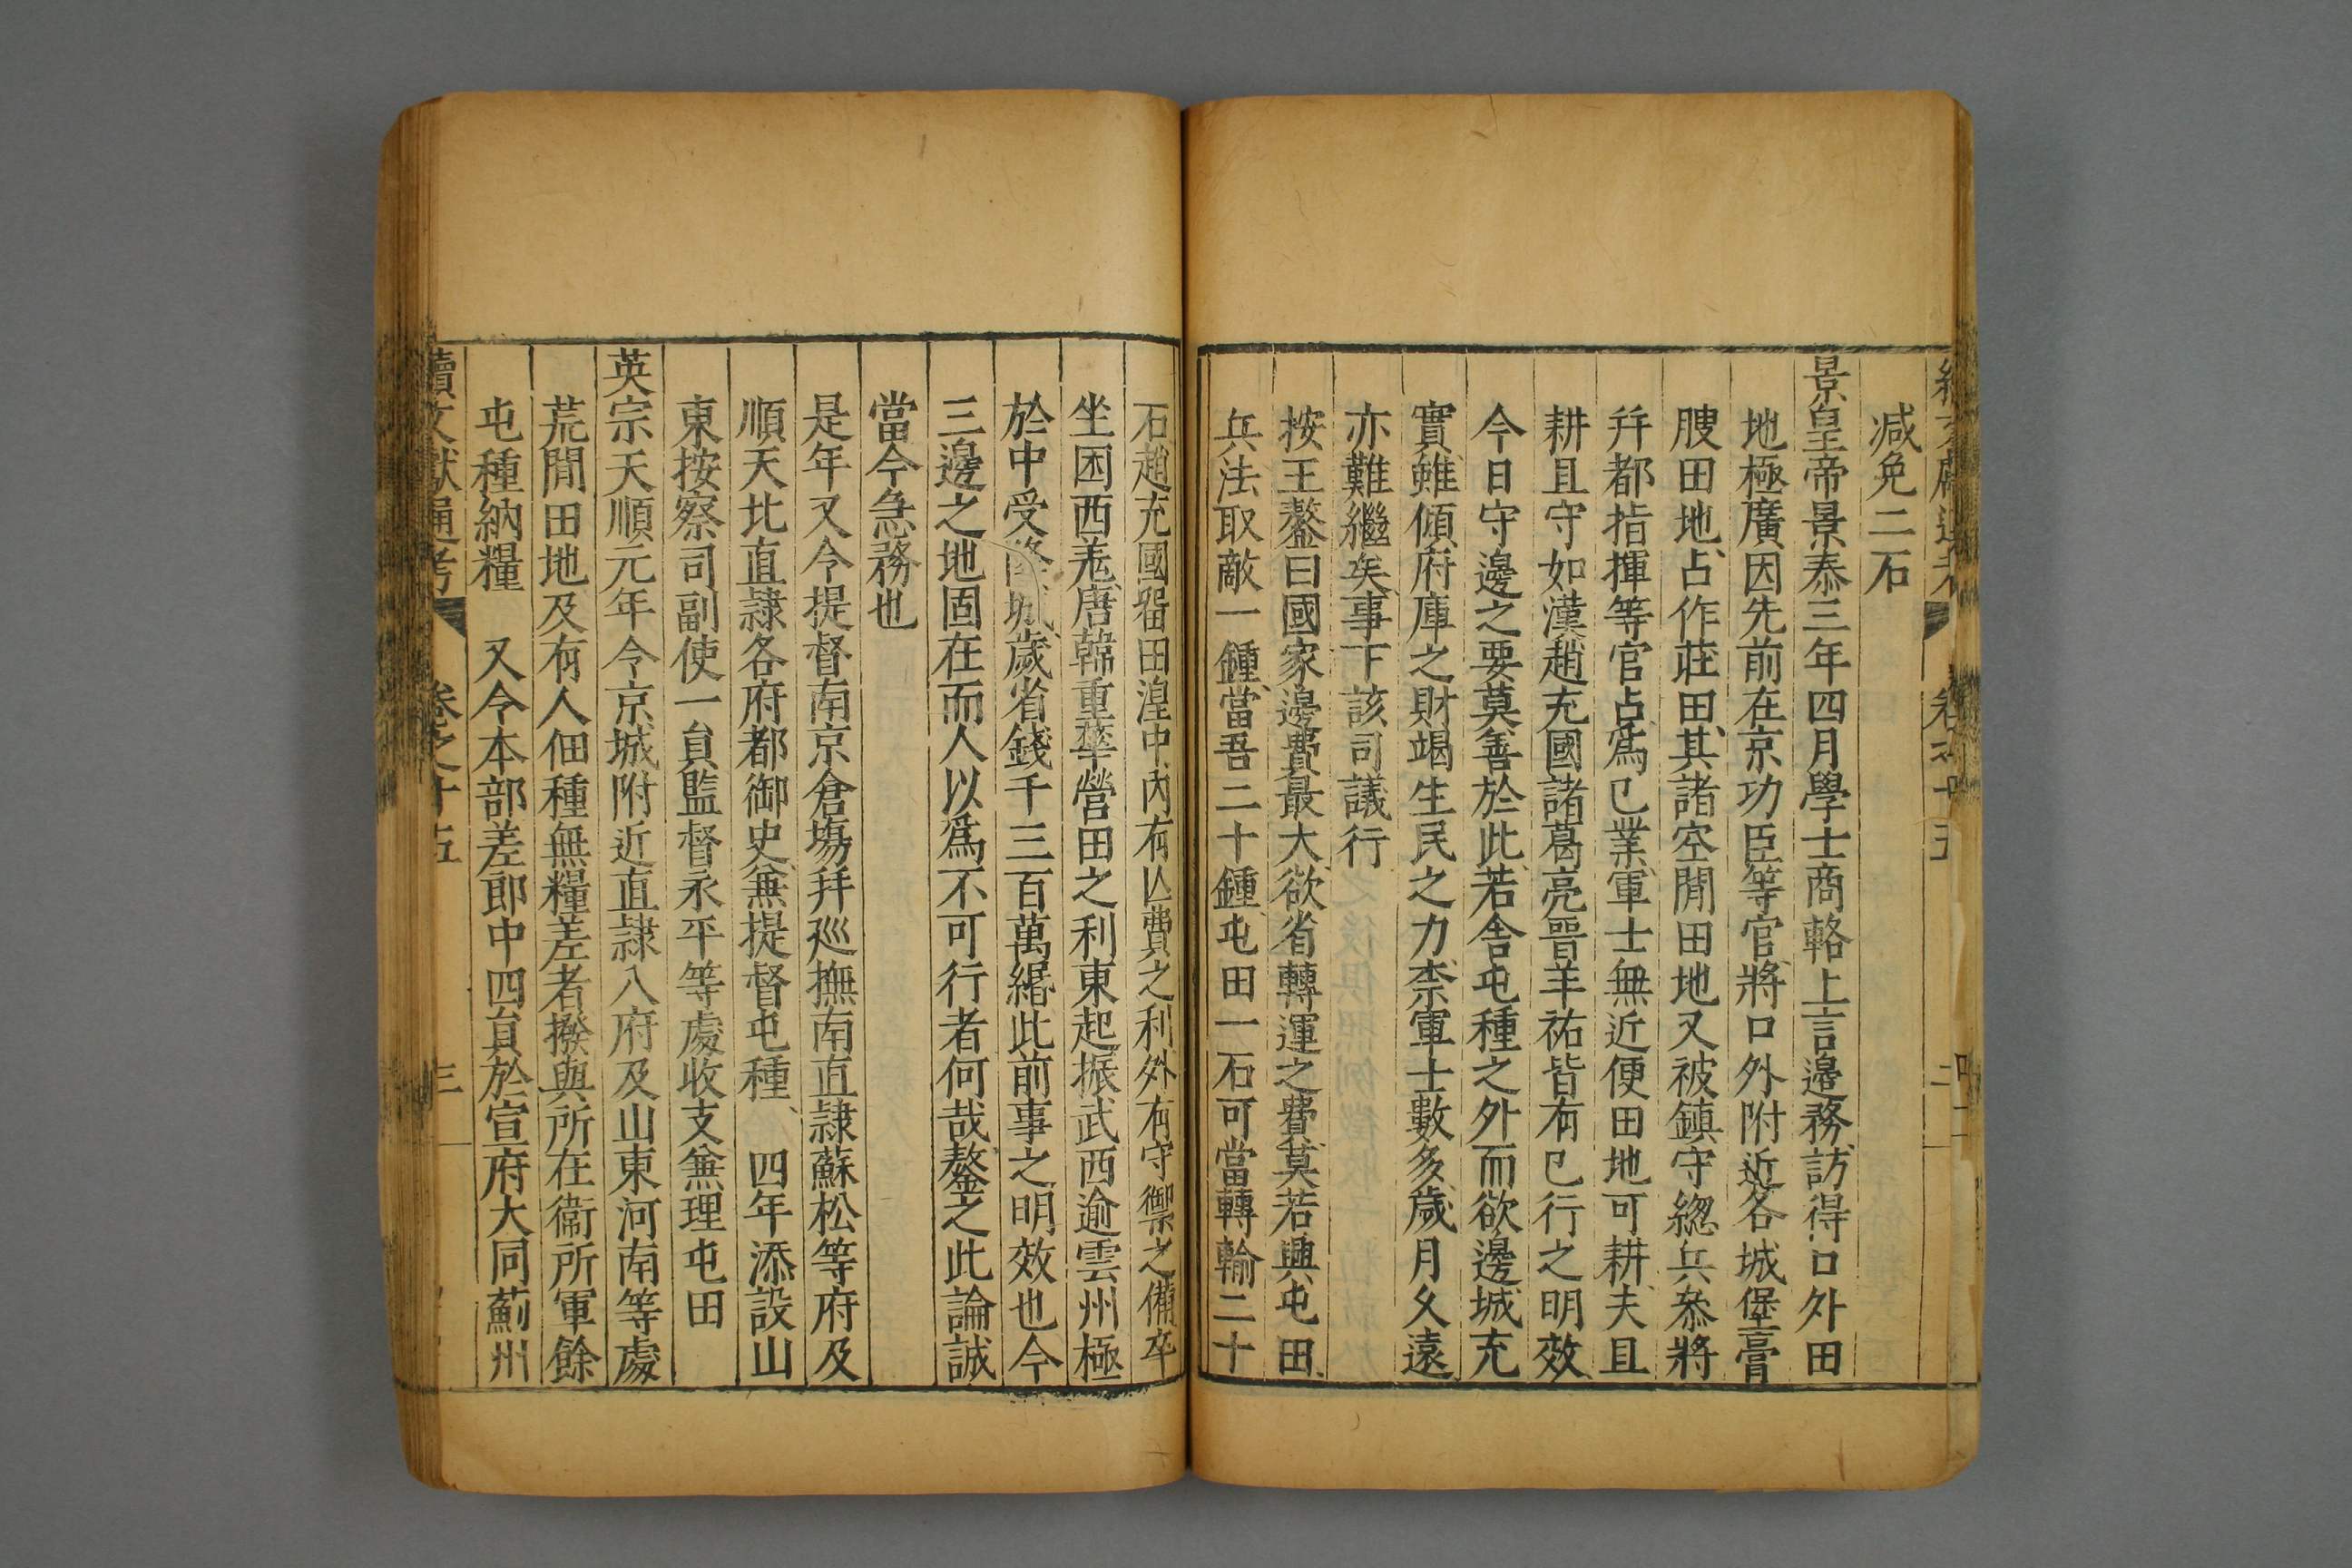 減免二石
景皇帝景泰三年四月學士商輅上言邊務訪得口外田
地極廣因先前在京功臣等官將口外附近各城堡膏
腴田地占作莊田其諸空閒田地又被鎮守緫兵叅將
幷都指揮等官占爲己業軍士無近便田地可耕夫且
耕且守如漢趙充國諸葛亮晉羊祜皆有已行之明效
今日守邊之要莫善於此若舍屯種之外而欲邊城充
實雖傾府庫之財竭生民之力柰軍士數多歲月久遠
亦難繼矣事下該司議行
按王鏊曰國家邊費最大欲省轉運之費莫若興屯田
兵法取敵一鍾當吾二十鍾屯田一石可當轉輸二十
石趙充國畱田湟中內有亾費之利外有守禦之備卒
坐困西羌唐韓重華營田之利東起振武西逾雲州極
於中受降城歲省錢千三百萬緡此前事之明效也今
三邊之地固在而人以爲不可行者何哉鏊之此論誠
當今急務也
是年又令提督南京倉塲幷廵撫南直隷蘇松等府及
順天北直隷各府都御史兼提督屯種　四年添設山
東按察司副使一員監督永平等處收支兼理屯田
英宗天順元年令京城附近直隷八府及山東河南等處
荒閒田地及有人佃種無糧差者撥與所在衞所軍餘
屯種納糧　又令本部差郎中四員於宣府大同薊州
續文獻通考　卷之十五　三